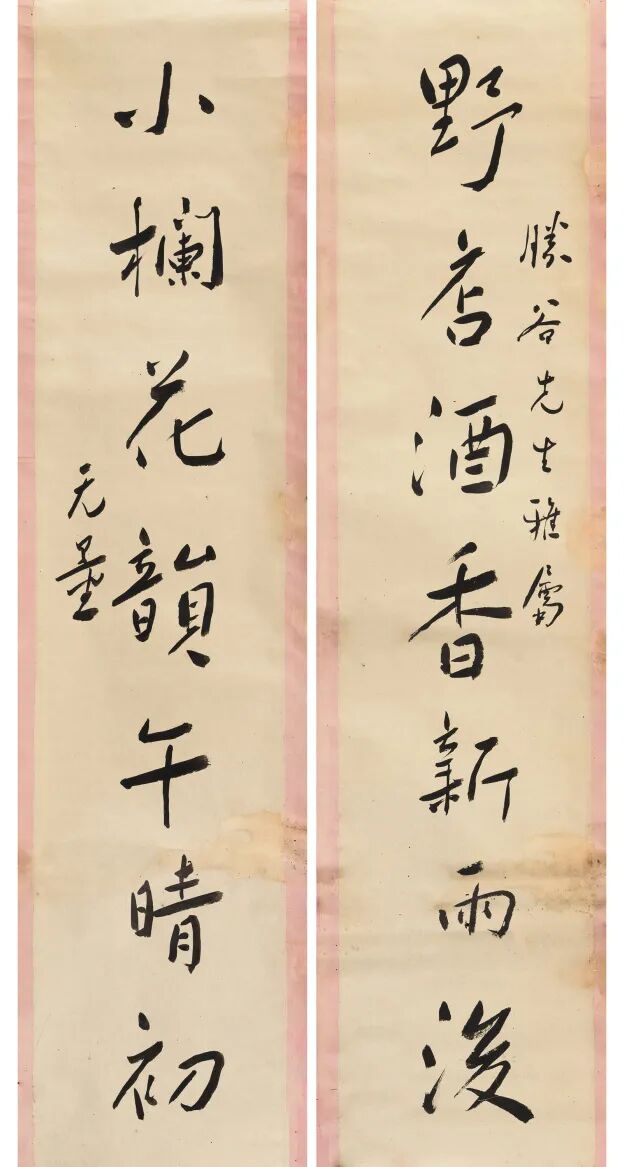 野店酒香新雨後
勝谷先生雅屬
小欄花韻午晴初
无量